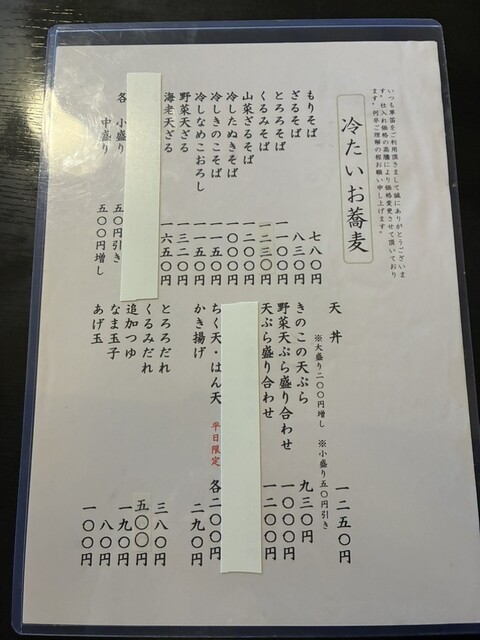 いつも草笛をご利用頂きまして誠にありがとうございま
す。仕入れ価格の高騰により価格変更させて頂いており
ます。何卒ご理解の程お願い申し上げます。
冷たいお蕎麦
もりそば 七八〇円
ざるそば 八三〇円
とろろそば 一一〇〇円
くるみそば 一二三〇円
山菜ざるそば 一二〇〇円
冷したぬきそば 一〇〇〇円
冷しきのこそば 一一五〇円
冷しなめこおろし 一一五〇円
野菜天ざる 一三二〇円
海老天ざる 一六五〇円
各 小盛り 五〇円引き
中盛り 五〇〇円増し
天丼 一二五〇円
※大盛り二〇〇円増し ※小盛り五〇円引き
きのこの天ぷら 九三〇円
野菜天ぷら盛り合わせ 一〇〇〇円
天ぷら盛り合わせ 一二〇〇円
ちく天・はん天 平日限定 各二〇〇円
かき揚げ 二九〇円
とろろだれ 三八〇円
くるみだれ 五〇〇円
追加つゆ 一九〇円
なま玉子 八〇円
あげ玉 一〇〇円